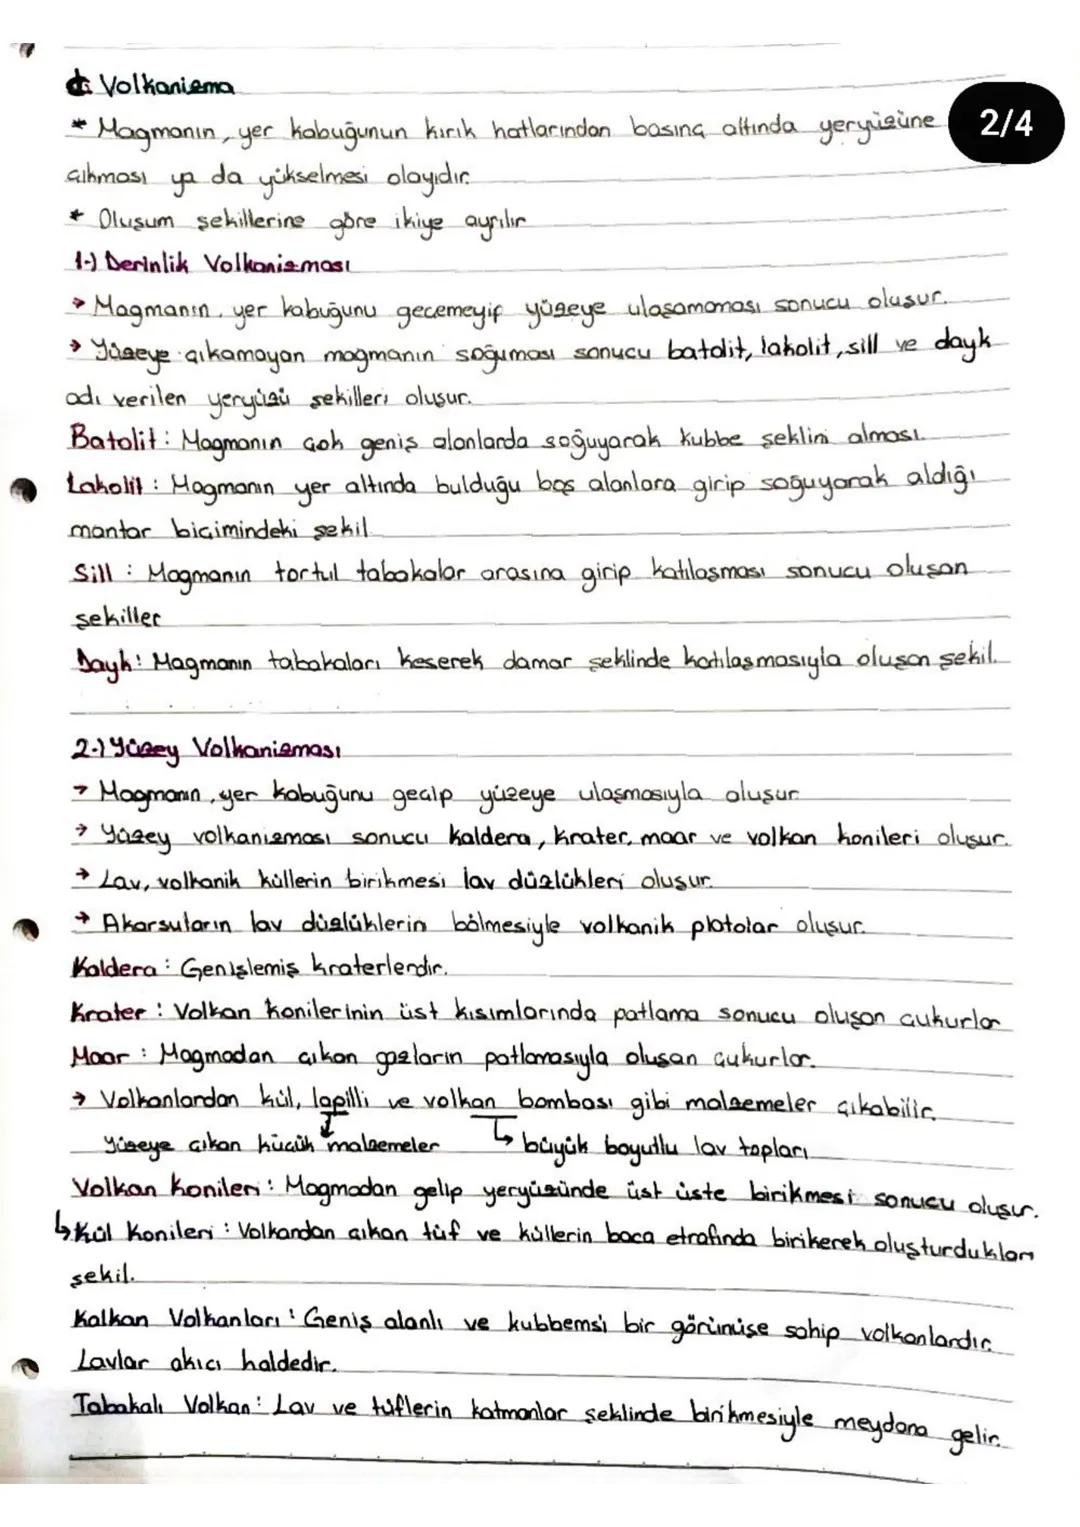 d. Volkanizma
2/4
* Magmanın, yer kabuğunun kırık hatlarından basınç altında yeryüzüne
çıkması ya da yükselmesi olayıdır.
* Oluşum şekillerine göre ikiye ayrılır
1-) Derinlik Volkanizması
→ Magmanın, yer kabuğunu geçemeyip yüzeye ulaşamaması sonucu oluşur.
→ Yüzeye çıkamayan magmanın soğuması sonucu batolit, lakolit, sill ve dayk
adı verilen yeryüzü şekilleri oluşur.
Batolit: Magmanın çok geniş alanlarda soğuyarak kubbe şeklini alması.
Lakolit: Magmanın yer altında bulduğu boş alanlara girip soğuyarak aldığı
mantar biçimindeki şekil
Sill: Magmanın tortul tabakalar arasına girip katılaşması sonucu oluşan
şekiller
Dayk: Magmanın tabakaları keserek damar şeklinde katılaşmasıyla oluşan şekil.
2-) Yüzey Volkanizması
→ Magmanın, yer kabuğunu geçip yüzeye ulaşmasıyla oluşur
→ Yüzey volkanizması sonucu kaldera, krater, maar ve volkan konileri oluşur.
→ Lav, volkanik küllerin birikmesi lav düzlükleri oluşur.
→ Akarsuların lav düzlüklerin bölmesiyle volkanik platolar oluşur.
Kaldera: Genişlemiş kraterlerdir.
Krater: Volkan konilerinin üst kısımlarında patlama sonucu oluşan çukurlar
Maar: Magmadan çıkan gazların patlamasıyla oluşan çukurlar.
→ Volkanlardan kül, lapilli ve volkan bombası gibi malzemeler çıkabilir.
yüzeye çıkan küçük malzemeler ↳ büyük boyutlu lav topları
Volkan Konileri: Magmadan gelip yeryüzünde üst üste birikmesi sonucu oluşur.
↳ Kül Konileri: Volkandan çıkan tüf ve küllerin baca etrafında birikerek oluşturdukları
şekil.
Kalkan Volkanları: Geniş alanlı ve kubbemsi bir görünüşe sahip volkanlardır.
Lavlar akıcı haldedir.
Tabakalı Volkan: Lav ve tüflerin katmanlar şeklinde birikmesiyle meydana gelir.